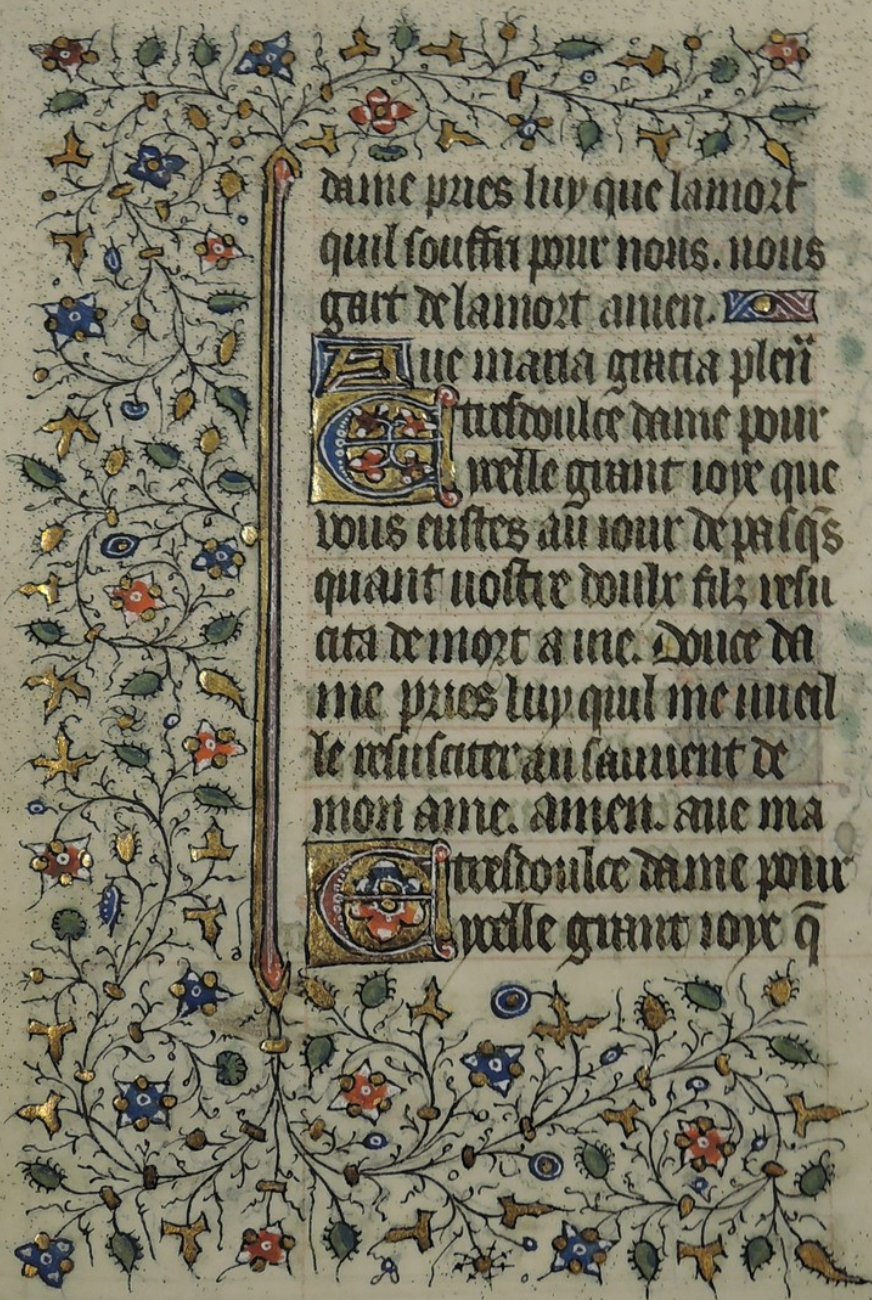 dame pries luy que lamort
quil souffri pour nous. nous
gart de lamort amen.
Aue maria gratia plen̄
E tresdoulce dame pour
ycelle grant ioye que
vous eustes au iour de pasq̄s
quant uostre doulx filz resu
cita de mort a uie. Douce da
me pries luy quil me uueil
le resusciter au sauuent de
mon ame. amen. aue ma
E tresdoulce dame pour
ycelle grant ioye q̄